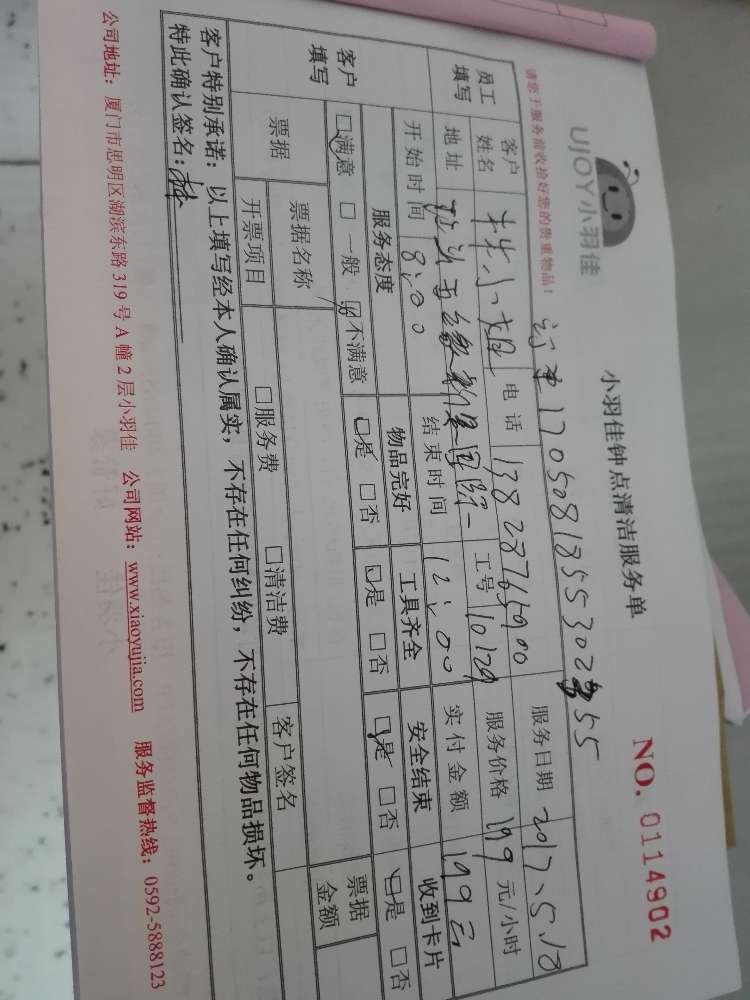 UJOY小羽佳
小羽佳钟点清洁服务单
NO. 0114902
请您于服务前收拾好您的贵重物品！
员工填写
客户姓名 林小姐 电话 服务日期 2017.5.10
地址 工号 10129 服务价格 199 元/小时
开始时间 8:00 结束时间 12:00 实付金额 199元
客户填写
服务态度 物品完好 工具齐全 安全结束 收到卡片
□满意 □一般 □不满意 □是 □否 □是 □否 □是 □否 □是 □否
票据 票据名称 客户签名 票据金额
开票项目 □服务费 □清洁费
客户特别承诺：以上填写经本人确认属实，不存在任何纠纷，不存在任何物品损坏。
特此确认签名：林
公司地址：厦门市思明区湖滨东路 319 号 A 幢 2 层小羽佳 公司网站：www.xiaoyujia.com 服务监督热线：0592-5888123